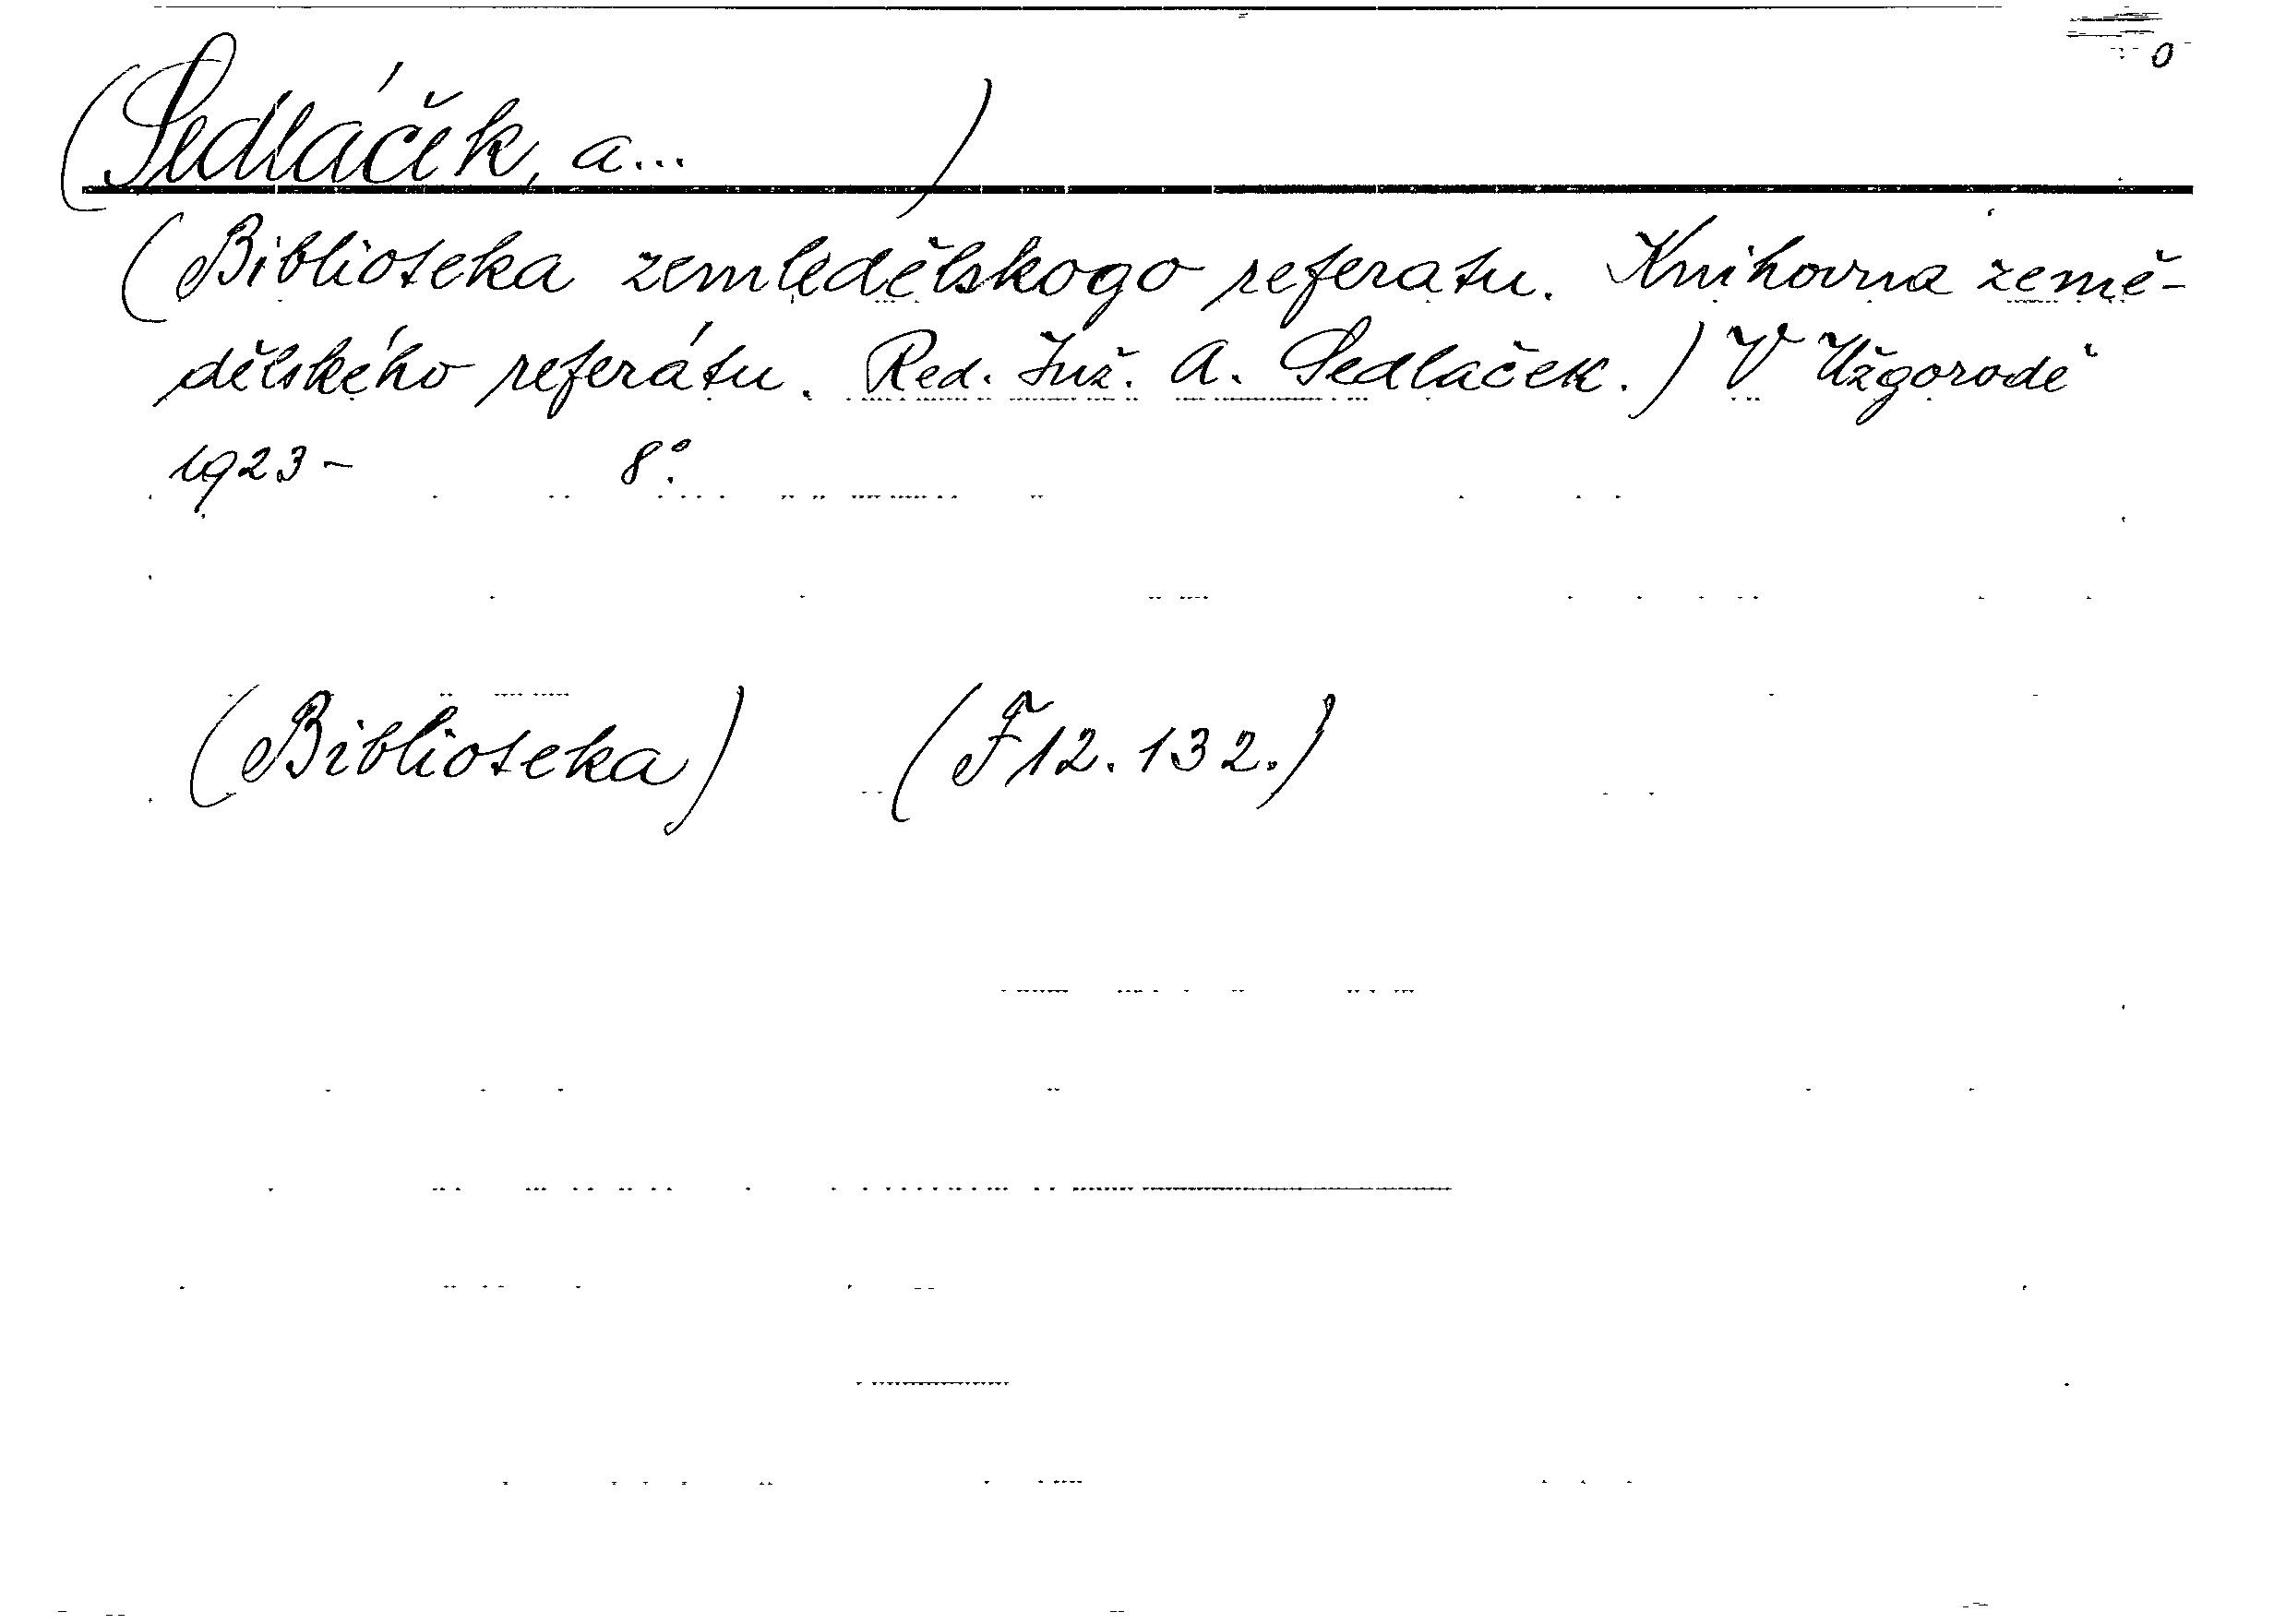 0
(Sedláček, a... )
(Biblioteka zemledělskogo referatu. Knihovna země-
dělského referátu. Red. Inž. A. Sedlaček.) V Užgorodě
1923- 8°.
(Biblioteka) (F 12.132.)